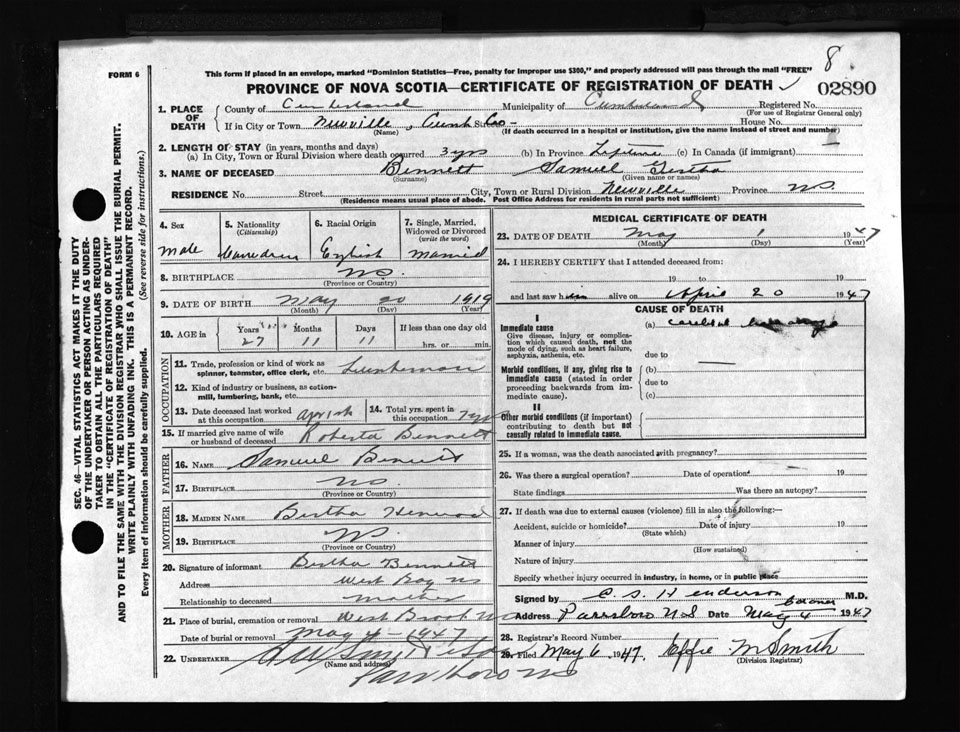 8
FORM 6
This form if placed in an envelope, marked "Dominion Statistics—Free, penalty for improper use $300," and properly addressed will pass through the mail "FREE"
PROVINCE OF NOVA SCOTIA—CERTIFICATE OF REGISTRATION OF DEATH
02890
SEC. 46—VITAL STATISTICS ACT MAKES IT THE DUTY
OF THE UNDERTAKER OR PERSON ACTING AS UNDER-
TAKER TO OBTAIN ALL THE PARTICULARS REQUIRED
IN THE "CERTIFICATE OF REGISTRATION OF DEATH"
AND TO FILE THE SAME WITH THE DIVISION REGISTRAR WHO SHALL ISSUE THE BURIAL PERMIT.
WRITE PLAINLY WITH UNFADING INK. THIS IS A PERMANENT RECORD.
Every item of information should be carefully supplied. (See reverse side for instructions.)
1. PLACE OF DEATH
County of Cumberland Municipality of Cumberland Registered No.
(For use of Registrar General only)
If in City or Town Newville, Cumb Co - House No.
(Name) (If death occurred in a hospital or institution, give the name instead of street and number)
2. LENGTH OF STAY (in years, months and days)
(a) In City, Town or Rural Division where death occurred 3 yrs (b) In Province Lifetime (c) In Canada (if immigrant)
3. NAME OF DECEASED Bennett Samuel
(Surname) (Given name or names)
RESIDENCE No. Street City, Town or Rural Division Newville Province NS
(Residence means usual place of abode. Post Office Address for residents in rural parts not sufficient)
4. Sex
male
5. Nationality
(Citizenship)
Canadian
6. Racial Origin
English
7. Single, Married,
Widowed or Divorced
(write the word)
Married
8. BIRTHPLACE NS.
(Province or Country)
9. DATE OF BIRTH May 20 1919
(Month) (Day) (Year)
10. AGE in Years Months Days If less than one day old
27 11 11 hrs. or min.
OCCUPATION
11. Trade, profession or kind of work as
spinner, teamster, office clerk, etc. Lumberman
12. Kind of industry or business, as cotton-
mill, lumbering, bank, etc.
13. Date deceased last worked
at this occupation
14. Total yrs. spent in
this occupation 7 yrs
15. If married give name of wife
or husband of deceased Roberta Bennett
FATHER
16. NAME Samuel Bennett
17. BIRTHPLACE NS.
(Province or Country)
MOTHER
18. MAIDEN NAME Bertha
19. BIRTHPLACE NS.
(Province or Country)
20. Signature of informant Bertha Bennett
Address West Bay NS
Relationship to deceased mother
21. Place of burial, cremation or removal West Brook NS
Date of burial or removal May 4 - 1947
22. UNDERTAKER
(Name and address)
Parrsboro NS
MEDICAL CERTIFICATE OF DEATH
23. DATE OF DEATH May 1 1947
(Month) (Day) (Year)
24. I HEREBY CERTIFY that I attended deceased from:
19 to 19
and last saw him alive on April 20 1947
CAUSE OF DEATH
I
Immediate cause
Give disease, injury or complica-
tion which caused death, not the
mode of dying, such as heart failure,
asphyxia, asthenia, etc.
(a) cerebral
due to
Morbid conditions, if any, giving rise to
immediate cause (stated in order
proceeding backwards from im-
mediate cause).
(b)
due to
(c)
II
Other morbid conditions (if important)
contributing to death but not
causally related to immediate cause.
25. If a woman, was the death associated with pregnancy?
26. Was there a surgical operation? Date of operation 19
State findings Was there an autopsy?
27. If death was due to external causes (violence) fill in also the following:—
Accident, suicide or homicide? Date of injury 19
(State which)
Manner of injury
(How sustained)
Nature of injury
Specify whether injury occurred in industry, in home, or in public place
Signed by C. S. Henderson M.D.
coroner
Address Parrsboro N.S Date May 4 1947
28. Registrar's Record Number
29. Filed May 6 1947. Effie M Smith
(Division Registrar)